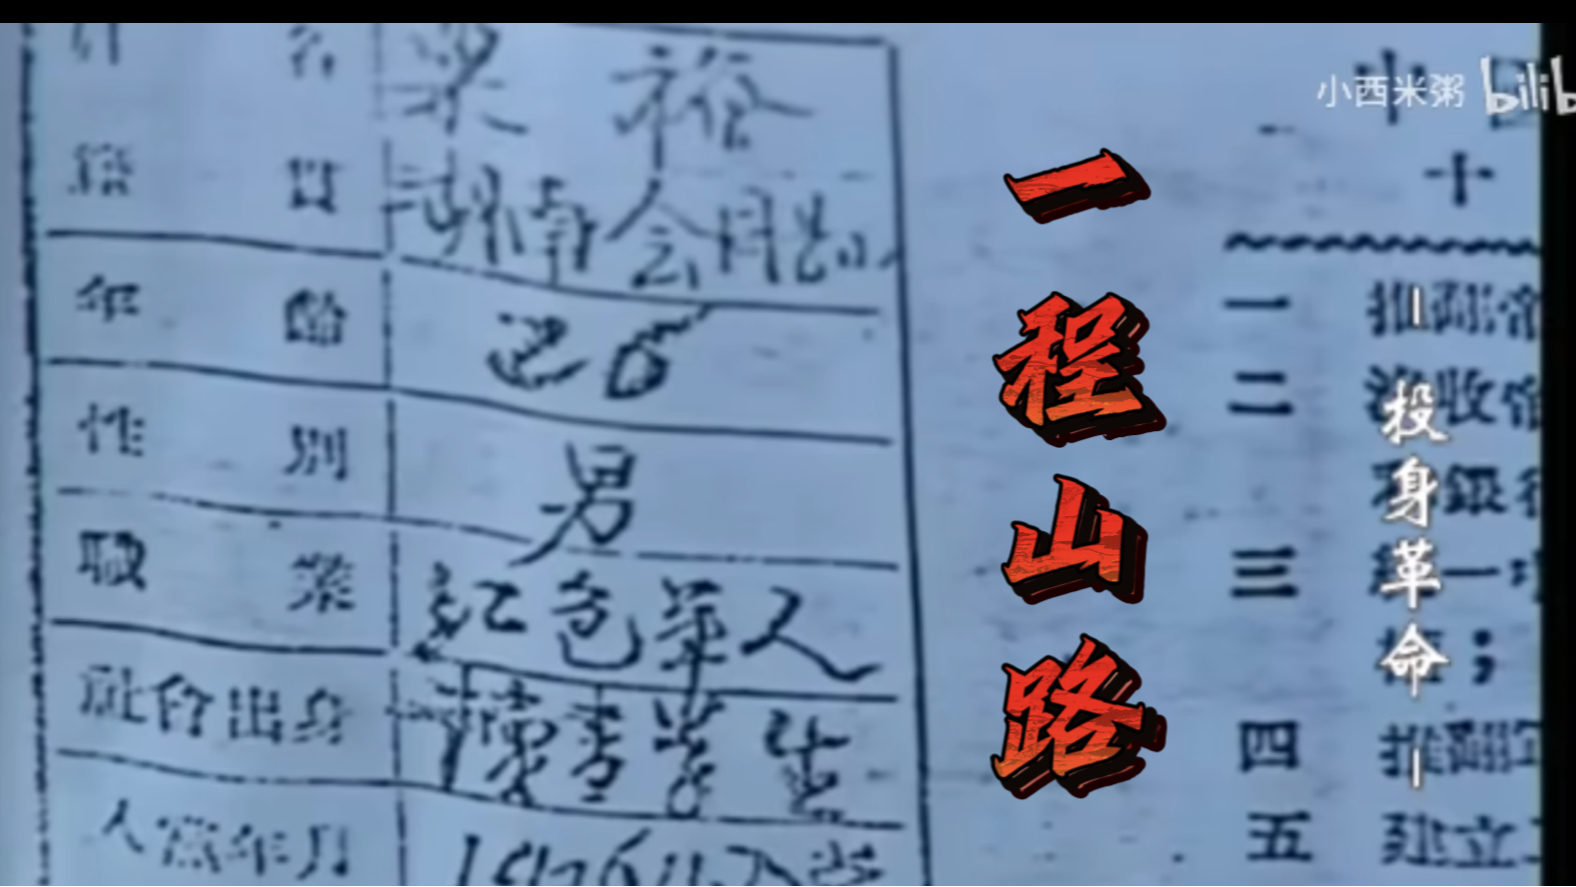 小西米粥 bilib
一程山路
投身革命
名 粟裕
籍貫 湖南会同
年齡 26
性別 男
職業 紅色軍人
社會出身 讀書學生
入黨年月
十
一 推翻帝
二 沒收
銀行
三 一
四 推翻
五 建立